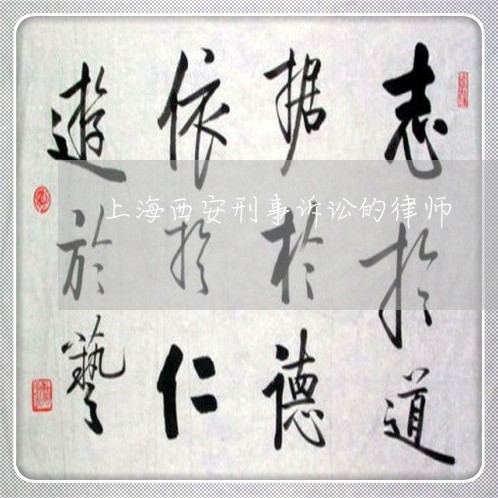 志於道
据於德
依於仁
遊於藝
上海西安刑事诉讼的律师